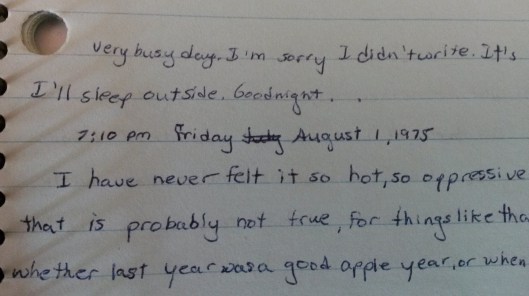 very busy day. I'm sorry I didn't write. It's
I'll sleep outside. Goodnight. . .
7:10 pm Friday August 1, 1975
I have never felt it so hot, so oppressive
that is probably not true, for things like tha
whether last year was a good apple year, or when